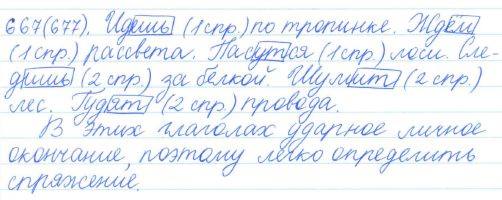 667(677). Идешь (1 спр.) по тропинке. Ждём
(1 спр.) рассвета. Пасутся (1 спр.) лоси. Сле-
дишь (2 спр.) за белкой. Шумит (2 спр.)
лес. Гудят (2 спр.) провода.
В этих глаголах ударное личное
окончание, поэтому легко определить
спряжение.